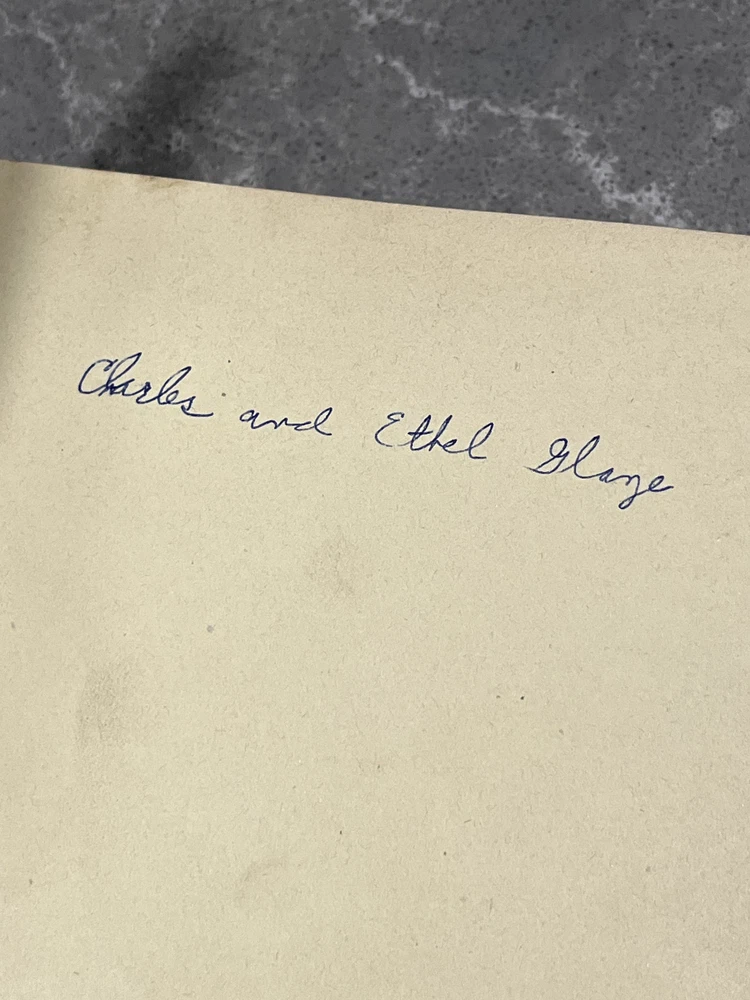 Charles and Ethel Glaze